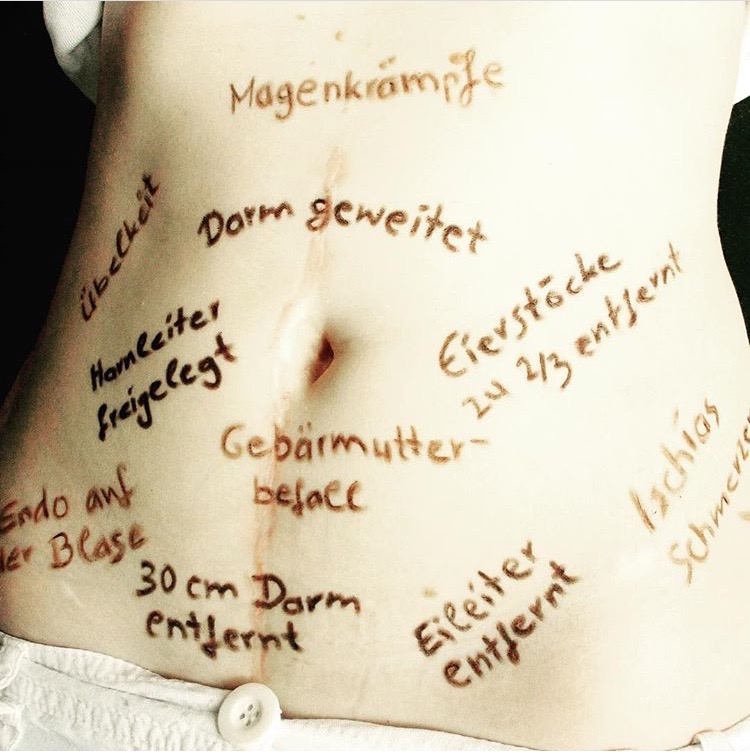 Magenkrämpfe
Übelkeit
Darm geweitet
Harnleiter
freigelegt
Eierstöcke
zu 2/3 entfernt
Gebärmutter-
befall
Ischias
Schmerzen
Endo auf
der Blase
30 cm Darm
entfernt
Eileiter
entfernt